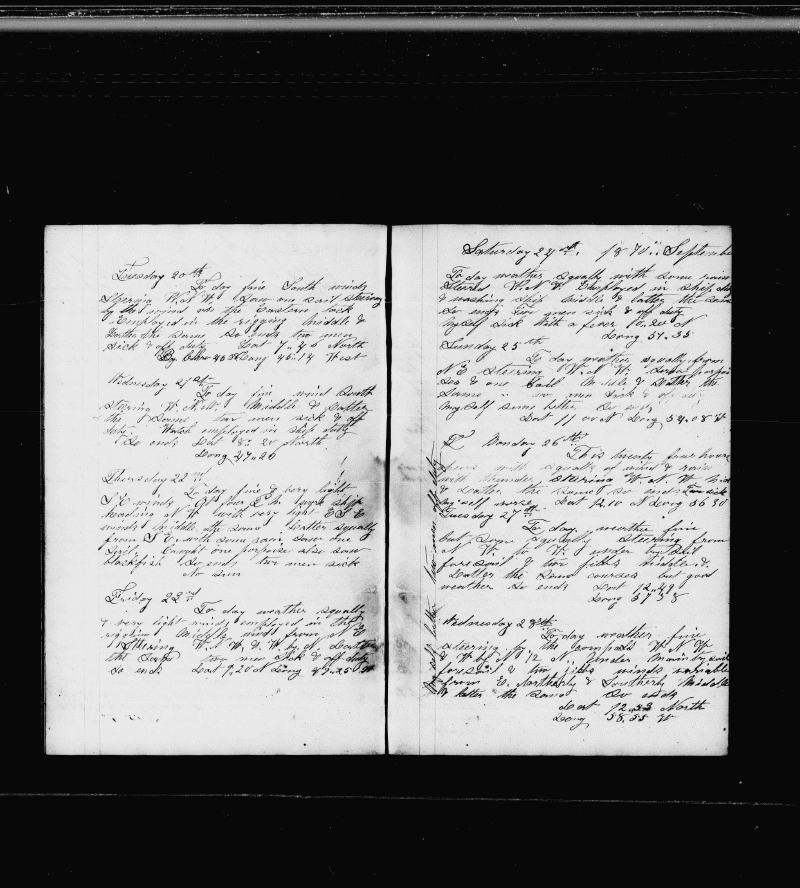 Tuesday 20th
To day fine South winds
Stearing W.N.W. Saw one sail stearing
by the wind on the Eastern tack
Employed in the rigging Middle &
Latter the same So ends two men
sick & off duty Lat 7.46 North
Long 45.14 West
Wednesday 21st
To day fine wind South
stering W.N.W. Middle & Latter
the Same two men sick & off
duty Watch employed in ship duty
So ends Lat 8.20 North
Long 47.26
Thursday 22nd
To day fine & very light
S E winds
heading N W with very light E S E
winds Middle the same Latter squally
from S E. with some rain saw one
Caught one porpoise also saw
blackfish So ends two men sick
No sun
Friday 22nd
To day weather squally
& very light winds employed in the
rigging Middle wind from N E
Stering W.N.W. & W by N. Latter
the Same Two men Sick & off duty
So ends Lat 9.20 N Long 49.25 W
Saturday 24th 1870 Septembe
To day weather squally with some rain
Steering W.N.W Employed in ship duty
& washing ship Middle & latter the same
So ends two men sick & off duty
Myself sick with a fever 10.20 N
Long 51.35
Sunday 25th
To day weather squally from
N E Steering W. N W. Saw
& one Sail Middle & Latter the
Same two men sick & off duty
Myself some better So ends
Lat 11 00 N Long 54.08 W
Monday 26th
This twenty four hours
with squalls of wind & rain
with thunder Steering W. N. W Mid
& Latter the same so ends Two sick
myself worse Lat 12.10 N Long 56 30
Tuesday 27th
To day weather fine
but some squally Steering from
N W. to W. under
foresail & two jibs Middle &
Latter the Same courses but good
weather So ends Lat 12.49
Long 57 58
Wednesday 28th
To day weather fine
steering by the compass W N W
& W by N 1/2 N. under
foresail & two jibs winds variable
from E. Northerly & Southerly Middle
& latter the Same So ends
Lat 12.33 North
Long 58.55 W
Myself better two men off duty